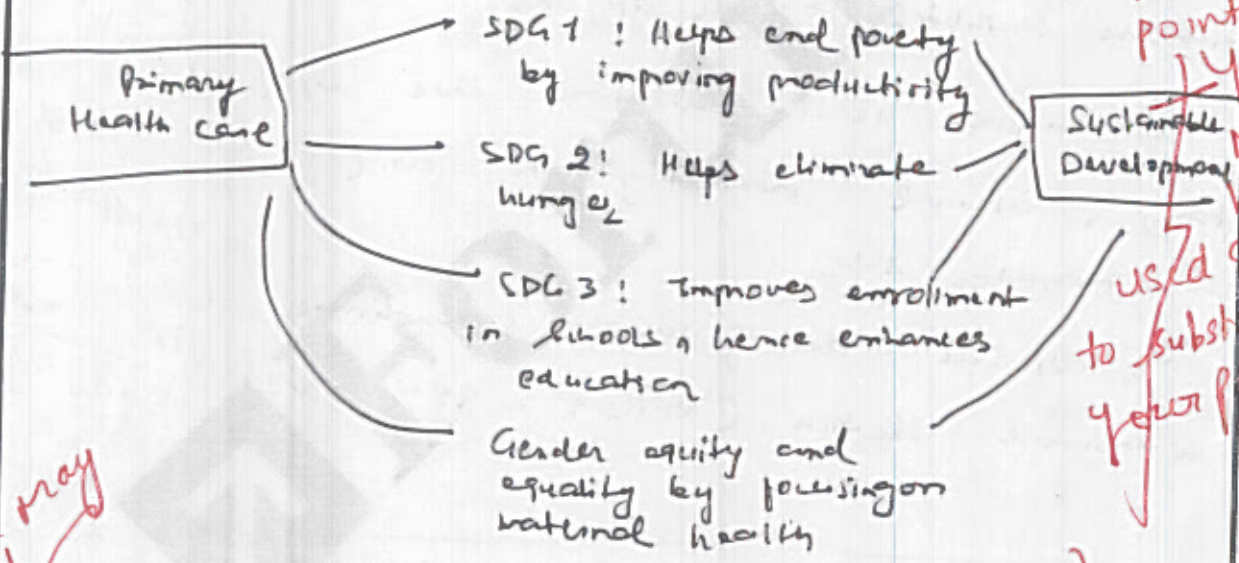 SDG 1 : Helps end poverty
by improving productivity
Primary
Health care
SDG 2 : Helps eliminate
hunger
SDG 3 : Improves enrollment
in schools, hence enhances
education
Gender equity and
equality by focusing on
maternal health
Sustainable
Development
point
used
to subst
your p
may